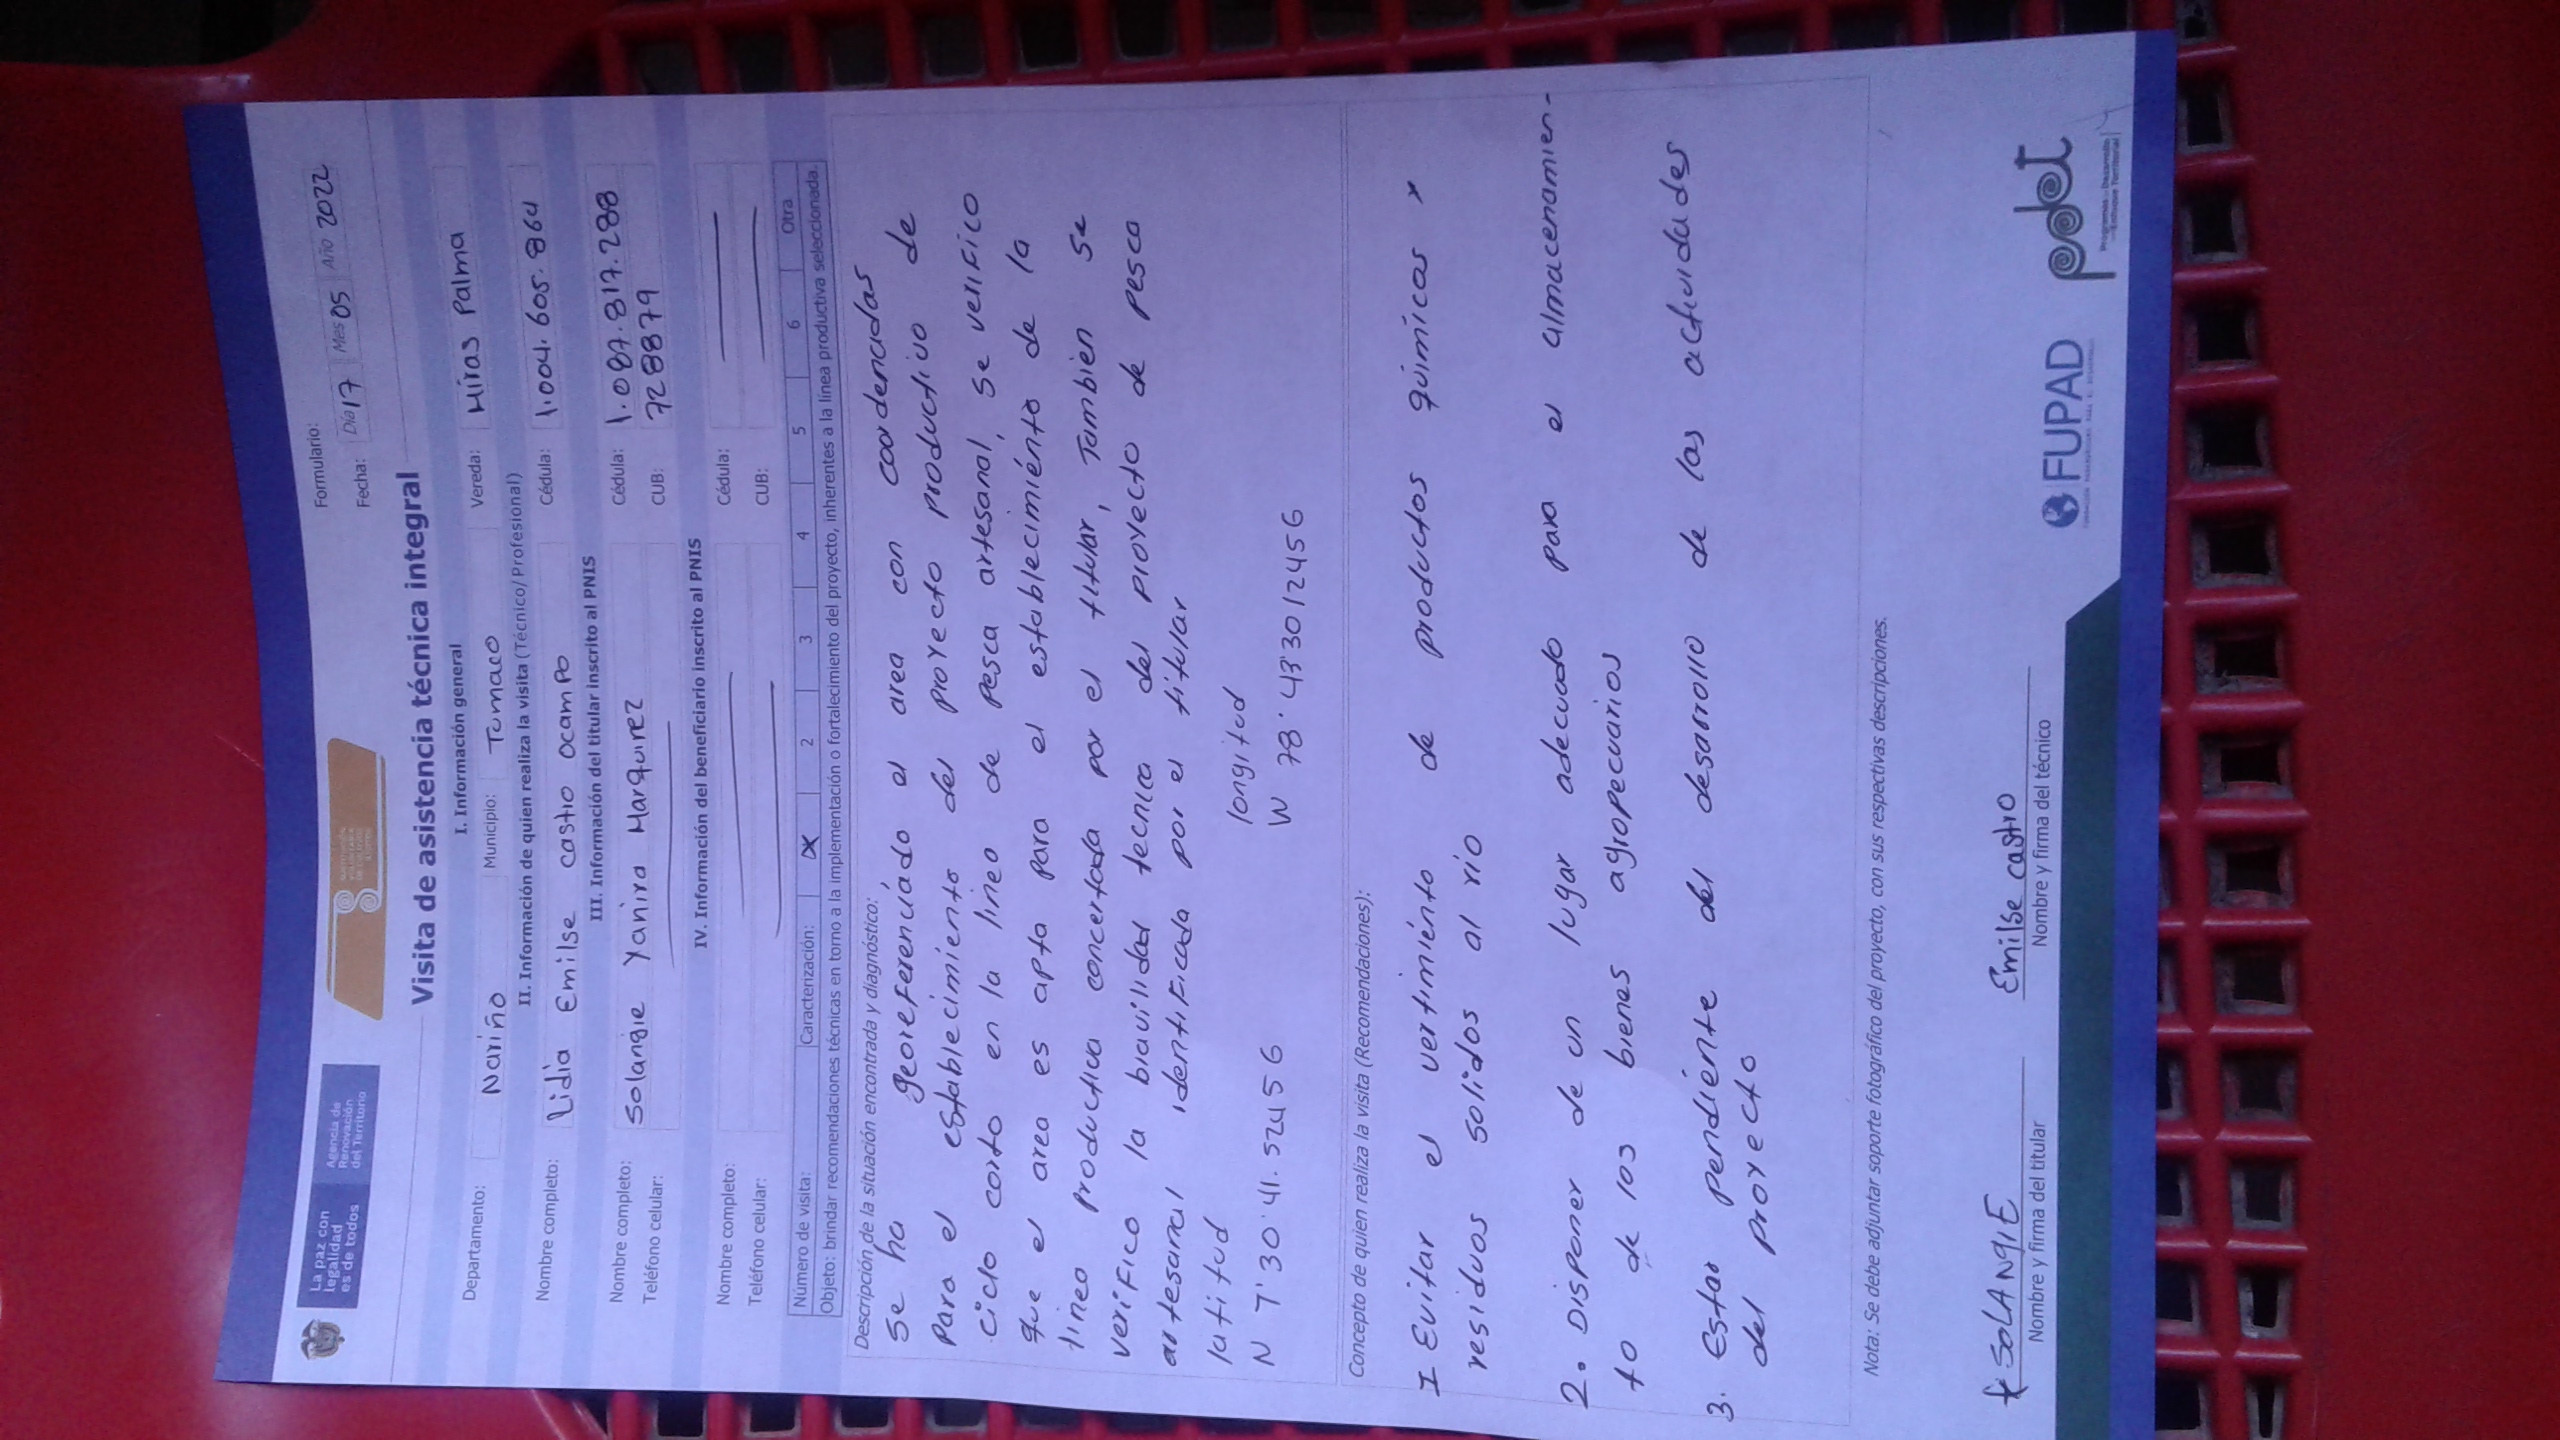 La paz con
legalidad
es de todos
Agencia de
Renovación
del Territorio
Formulario:
Fecha: Día 17 Mes 05 Año 2022
Visita de asistencia técnica integral
I. Información general
Departamento: Nariño Municipio: Tumaco Vereda: Miras Palma
II. Información de quien realiza la visita (Técnico/Profesional)
Nombre completo: Lidia Emilse castro ocampo Cédula: 1.004.605.864
III. Información del titular inscrito al PNIS
Nombre completo: Solangie Yanira Marquinez Cédula: 1.087.817.288
Teléfono celular: CUB: 728879
IV. Información del beneficiario inscrito al PNIS
Nombre completo: Cédula:
Teléfono celular: CUB:
Número de visita: Caracterización: X 2 3 4 5 6 Otra
Objeto: brindar recomendaciones técnicas en torno a la implementación o fortalecimiento del proyecto, inherentes a la línea productiva seleccionada.
Descripción de la situación encontrada y diagnóstico:
Se ha georeferenciado el area con coordenadas
para el establecimiento del proyecto productivo de
ciclo corto en la linea de pesca artesanal, se verifico
que el area es apta para el establecimiento de la
linea productiva concertada por el titular, Tambien se
verifico la biavilidad tecnica del proyecto de pesca
artesanal identificada por el titular
latitud longitud
N 1°30'41.52456 W 78°43'3012456
Concepto de quien realiza la visita (Recomendaciones):
1 Evitar el vertimiento de productos quimicos y
residuos solidos al rio
2. Disponer de un lugar adecuado para el almacenamien-
to de los bienes agropecuarios
3. Estar pendiente del desarrollo de las actividades
del proyecto
Nota: Se debe adjuntar soporte fotográfico del proyecto, con sus respectivas descripciones.
SOLANGIE Emilse castro
Nombre y firma del titular Nombre y firma del técnico
FUPAD
pdet
Programas de Desarrollo
con Enfoque Territorial